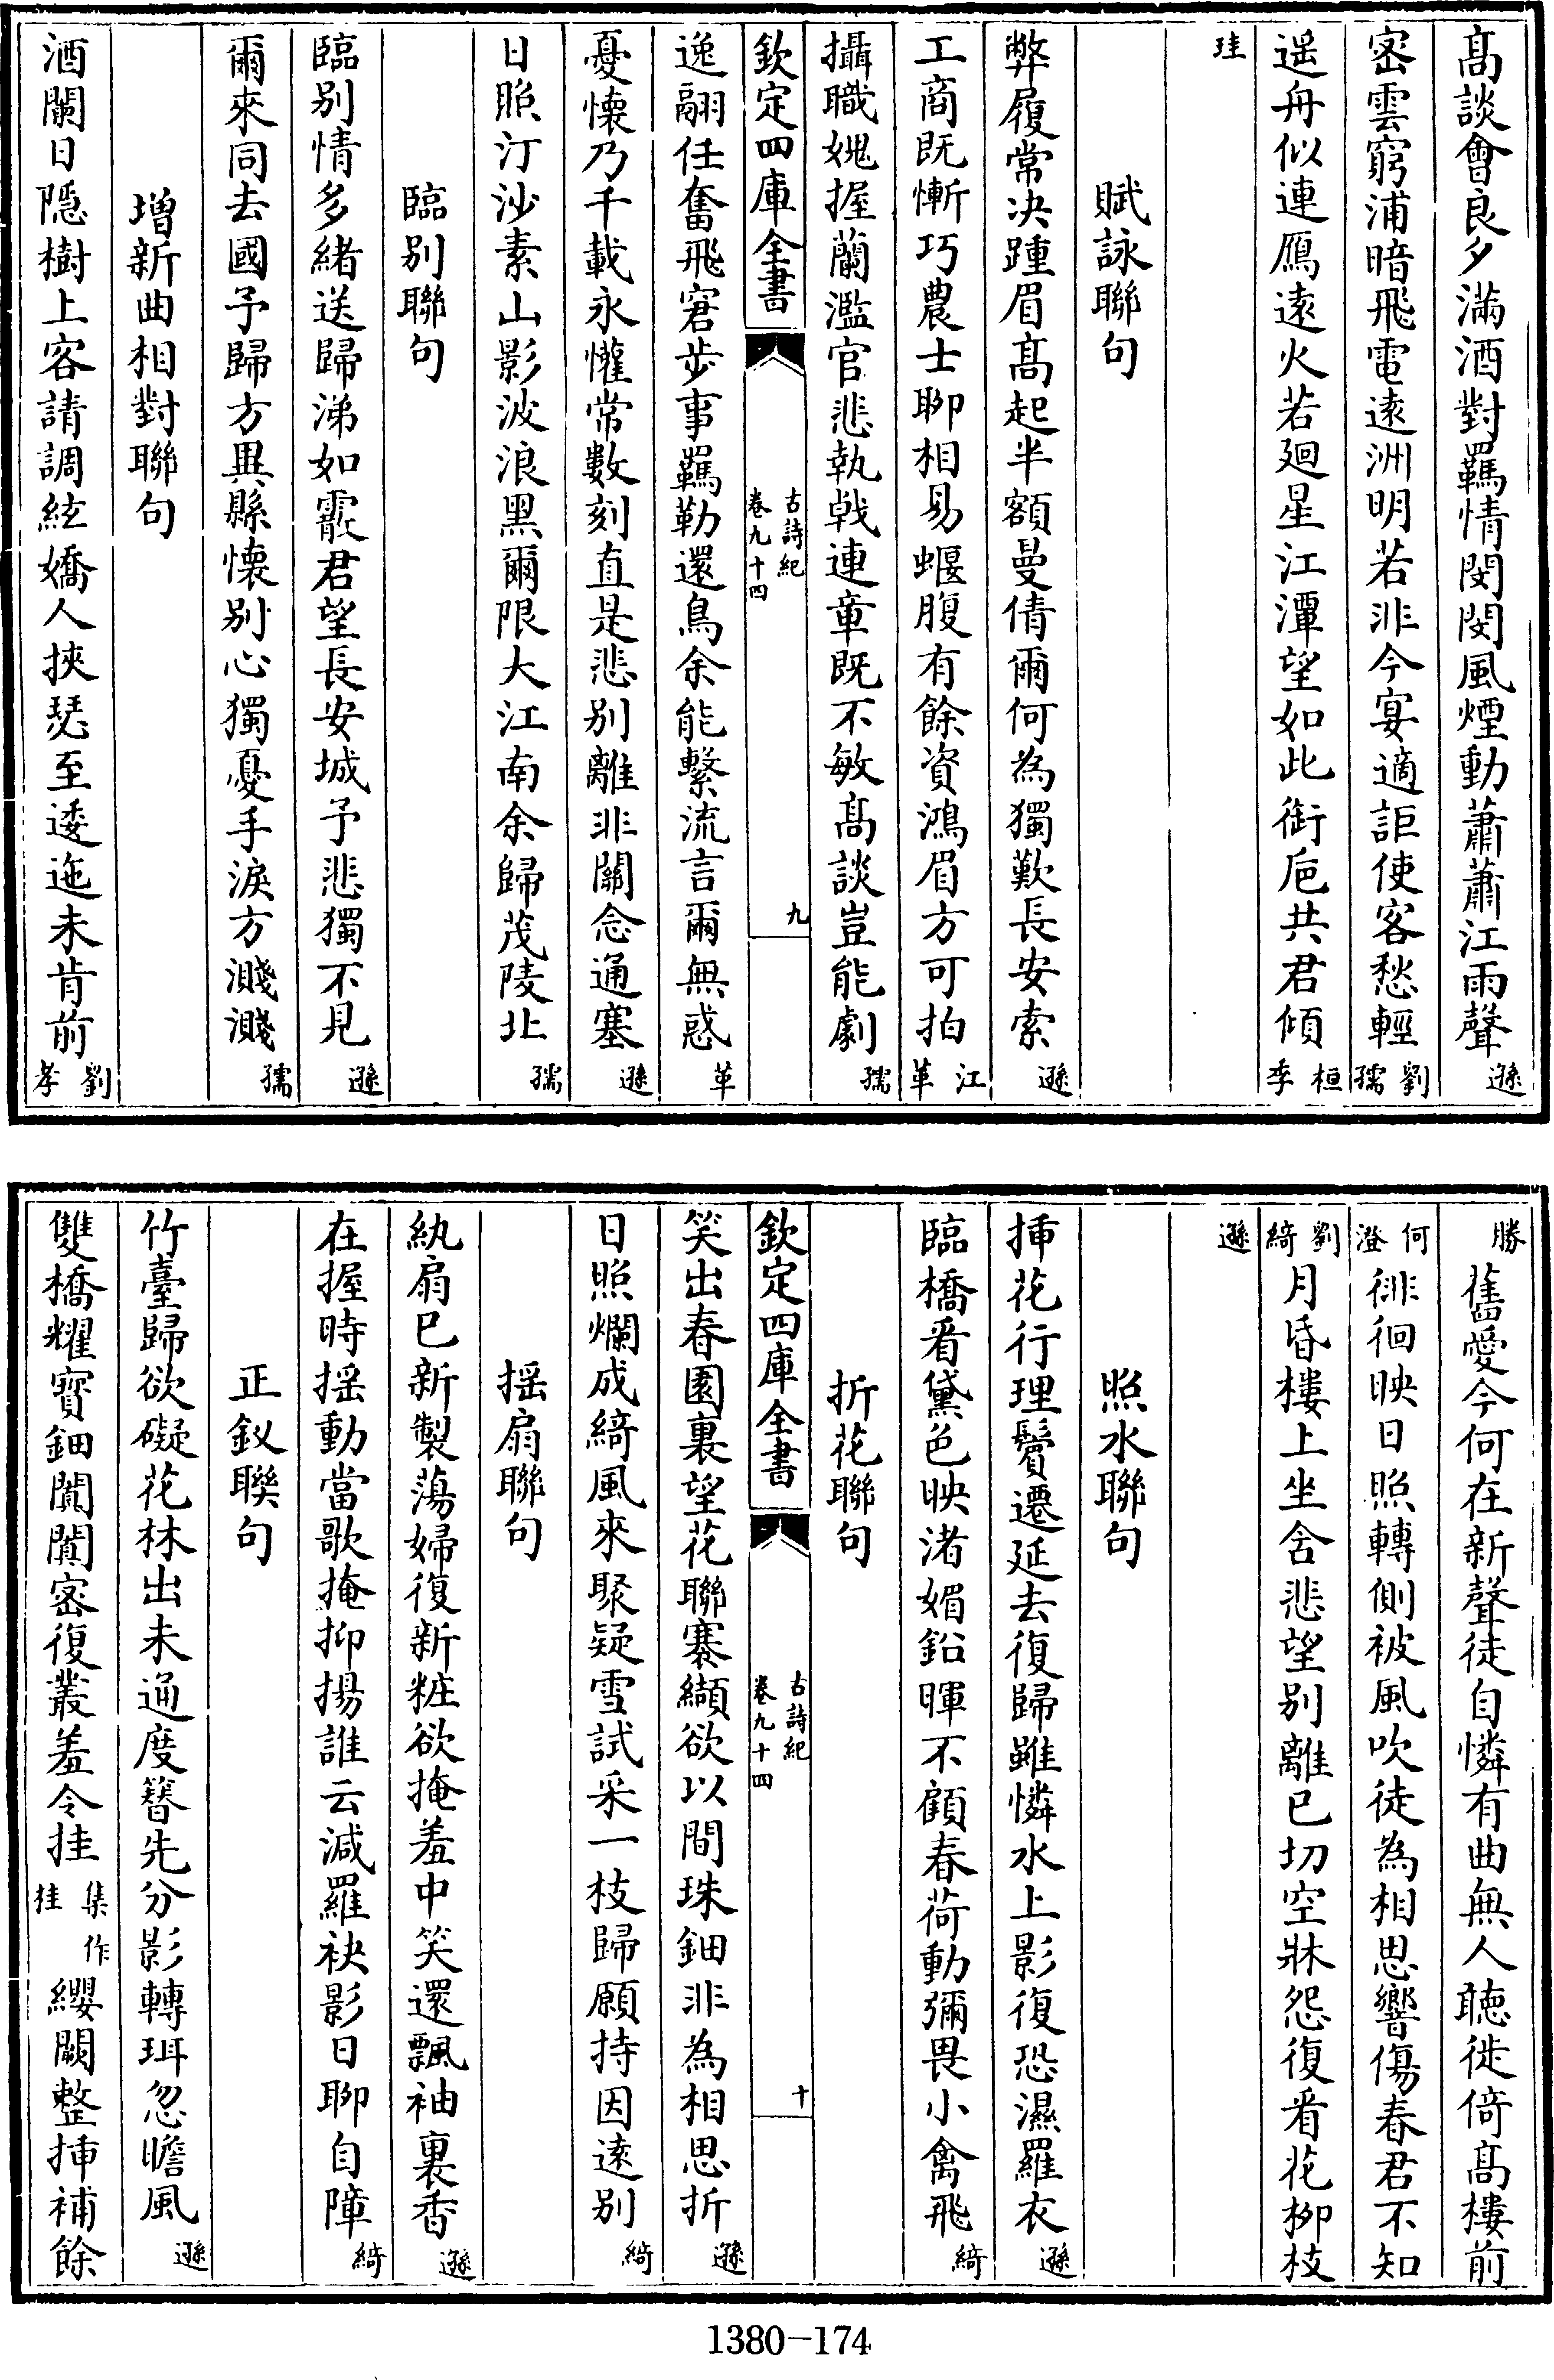 髙談會良夕滿酒對羈情閔閔風煙動蕭蕭江雨聲遜
密雲窮浦暗飛電遠洲明若非今宴適詎使客愁輕劉孺
遥舟似連鴈遠火若廻星江潭望如此銜巵共君傾桓季
珪
賦詠聯句
弊履常决踵眉髙起半額曼倩爾何為獨歎長安索遜
工商既慚巧農士聊相易蝘腹有餘資鴻眉方可拍江革
攝職媿握蘭濫官悲執戟連章既不敏髙談豈能劇孺
欽定四庫全書
古詩紀
卷九十四
九
逸翮任奮飛窘步事羈勒還鳥余能繫流言爾無惑革
憂懷乃千載永懽常數刻直是悲别離非關念通塞遜
日照汀沙素山影波浪黒爾限大江南余歸茂陵北孺
臨别聯句
臨别情多緒送歸涕如霰君望長安城予悲獨不見遜
爾來同去國予歸方異縣懷别心獨憂手淚方濺濺孺
增新曲相對聯句
酒闌日隱樹上客請調絃嬌人挾瑟至逶迤未肯前劉孝
勝舊愛今何在新聲徒自憐有曲無人聽徙倚髙樓前
何澄徘徊映日照轉側被風吹徒為相思響傷春君不知
劉綺月昏樓上坐含悲望别離已切空牀怨復看花柳枝
遜
照水聯句
挿花行理鬢遷延去復歸雖憐水上影復恐濕羅衣遜
臨橋看黛色映渚媚鉛暉不顧春荷動彌畏小禽飛綺
折花聯句
欽定四庫全書
古詩紀
卷九十四
十
笑出春園裏望花聯褰纈欲以間珠鈿非為相思折遜
日照爛成綺風來聚疑雪試采一枝歸願持因遠别綺
揺扇聯句
紈扇已新製蕩婦復新粧欲掩羞中笑還飄袖裏香遜
在握時揺動當歌掩抑揚誰云減羅袂影日聊自障綺
正釵聯句
竹臺歸欲礙花林出未通度簪先分影轉珥忽瞻風遜
雙橋耀寶鈿闐闐密復叢羞令挂集作挂纓闕整挿補餘
1380-174